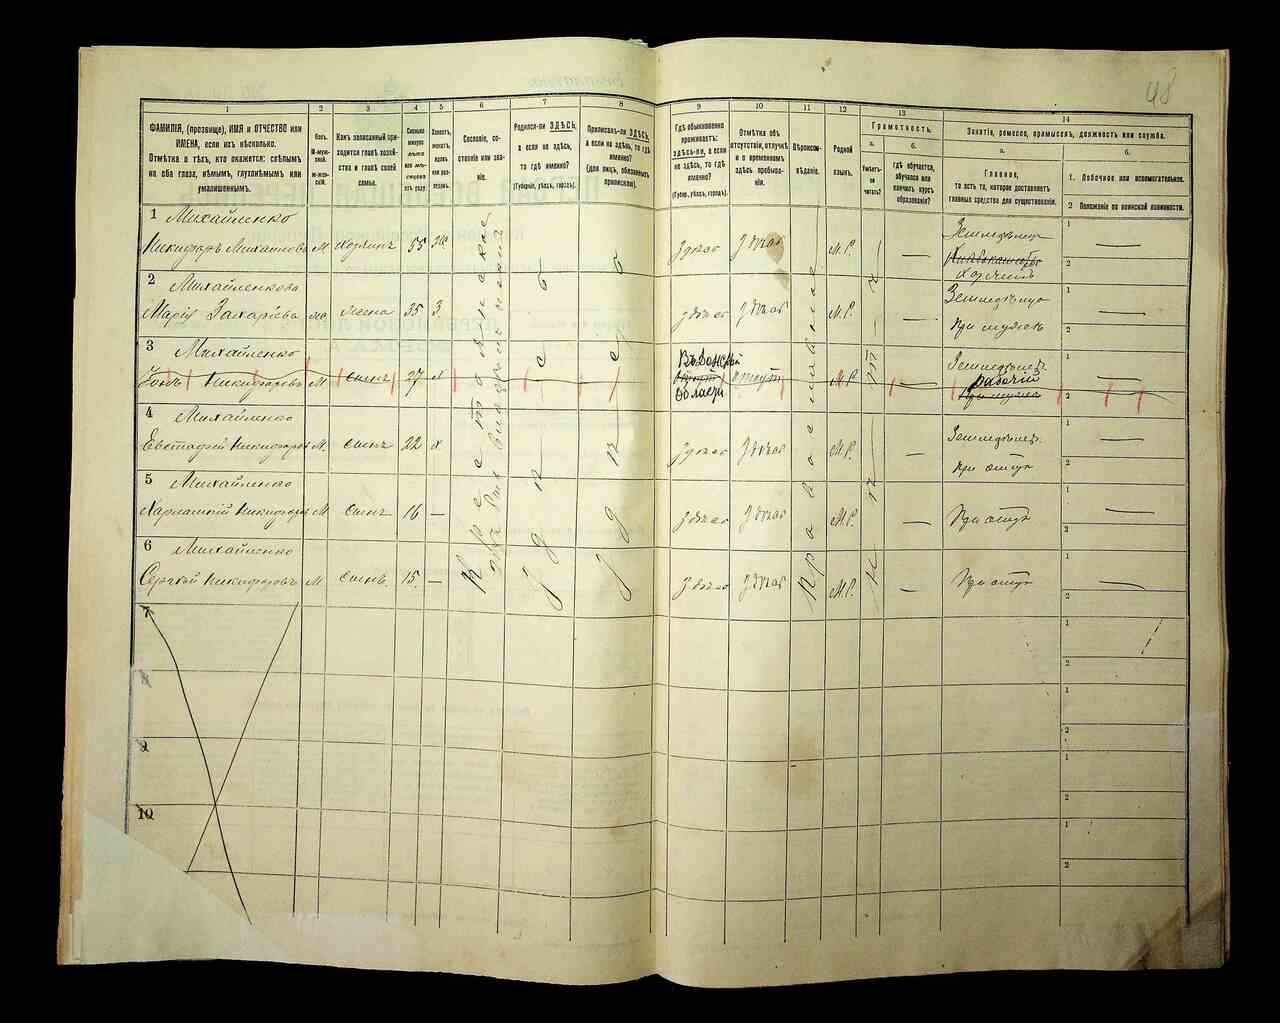 48
1 2 3 4 5 6 7 8 9 10 11 12 13 14
ФАМИЛІЯ, (прозвище), ИМЯ и ОТЧЕСТВО или
ИМЕНА, если ихъ нѣсколько.
Отмѣтка о тѣхъ, кто окажется: слѣпымъ
на оба глаза, нѣмымъ, глухонѣмымъ или
умалишеннымъ.
Полъ.
М-муж-
ской.
Ж-жен-
скій.
Какъ записанный при-
ходится главѣ хозяй-
ства и главѣ своей
семьи.
Сколько
минуло
лѣтъ
или мѣ-
сяцевъ
отъ роду.
Холостъ,
женатъ,
вдовъ
или раз-
веденъ.
Сословіе, со-
стояніе или зва-
ніе.
Родился-ли ЗДѢСЬ,
а если не здѣсь,
то гдѣ именно?
(Губернія, уѣздъ, городъ).
Приписанъ-ли ЗДѢСЬ,
а если не здѣсь, то гдѣ
именно?
(для лицъ, обязанныхъ
припискою).
Гдѣ обыкновенно
проживаетъ:
здѣсь-ли, а если
не здѣсь, то гдѣ
именно?
(Губерн., уѣздъ, городъ).
Отмѣтка объ
отсутствіи, отлучкѣ
и о временномъ
здѣсь пребыва-
ніи.
Вѣроиспо-
вѣданіе.
Родной
языкъ.
Грамотность.
а.
Умѣетъ-
ли
читать?
б.
гдѣ обучается,
обучался или
кончилъ курсъ
образованія?
Занятіе, ремесло, промыселъ, должность или служба.
а.
Главное,
то есть то, которое доставляетъ
главныя средства для существованія.
б.
1. Побочное или вспомогательное.
2 Положеніе по воинской повинности.
1 Михайленко
Никифоръ Михайлов М. Хозяинъ 55 Ж. здѣсь здѣсь М.Р. — Земледѣлецъ —
Хозяинъ
2 Михайленкова
Марія Захарова Жена 35 З. здѣсь здѣсь М.Р. — Земледѣліе —
При мужѣ
3 Михайленко
Никифоровъ М сынъ 27 х Въ Донской отсут М.Р. — Земледѣлец. —
Области рабочій
4 Михайленко
Евстафій Никифоров М. сынъ 22 х здѣсь здѣсь М.Р. — Земледѣлец. —
При отцѣ
5 Михайленко
Харлампій Никифоров М сынъ 16 — здѣсь здѣсь М.Р. — При отцѣ —
6 Михайленко
Сергѣй Никифоровъ М сынъ. 15. — здѣсь здѣсь М.Р. — При отцѣ —
Крестьянское
Здѣсь
Здѣсь
Православное
Нѣтъ
7
8
9
10